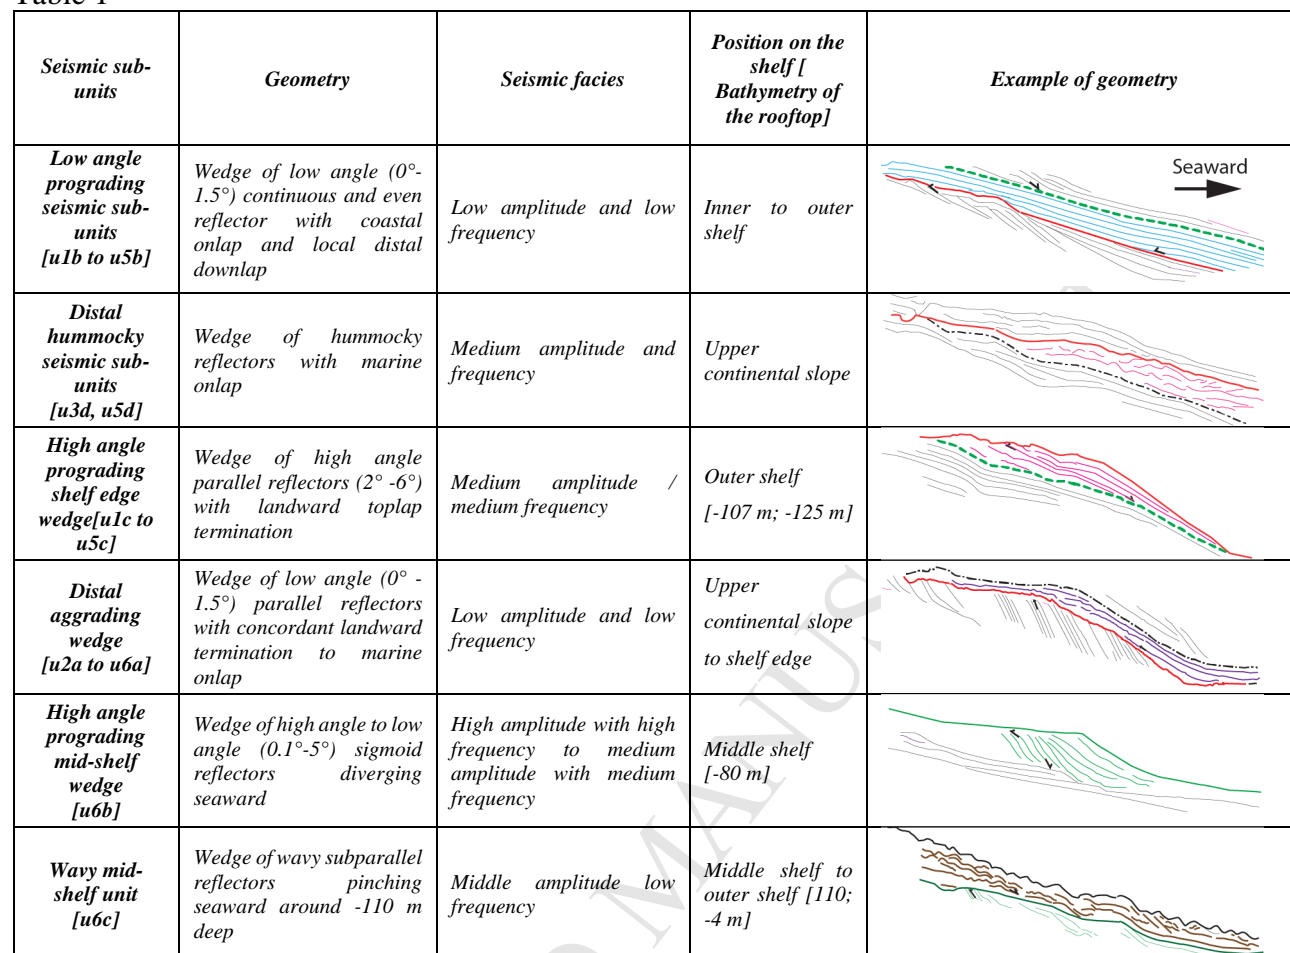 Table 1
Seismic sub-
units
Geometry
Seismic facies
Position on the
shelf [
Bathymetry of
the rooftop]
Example of geometry
Low angle
prograding
seismic sub-
units
[u1b to u5b]
Wedge of low angle (0°-
1.5°) continuous and even
reflector with coastal
onlap and local distal
downlap
Low amplitude and low
frequency
Inner to outer
shelf
Seaward
Distal
hummocky
seismic sub-
units
[u3d, u5d]
Wedge of hummocky
reflectors with marine
onlap
Medium amplitude and
frequency
Upper
continental slope
High angle
prograding
shelf edge
wedge[u1c to
u5c]
Wedge of high angle
parallel reflectors (2° -6°)
with landward toplap
termination
Medium amplitude /
medium frequency
Outer shelf
[-107 m; -125 m]
Distal
aggrading
wedge
[u2a to u6a]
Wedge of low angle (0° -
1.5°) parallel reflectors
with concordant landward
termination to marine
onlap
Low amplitude and low
frequency
Upper
continental slope
to shelf edge
High angle
prograding
mid-shelf
wedge
[u6b]
Wedge of high angle to low
angle (0.1°-5°) sigmoid
reflectors diverging
seaward
High amplitude with high
frequency to medium
amplitude with medium
frequency
Middle shelf
[-80 m]
Wavy mid-
shelf unit
[u6c]
Wedge of wavy subparallel
reflectors pinching
seaward around -110 m
deep
Middle amplitude low
frequency
Middle shelf to
outer shelf [110;
-4 m]